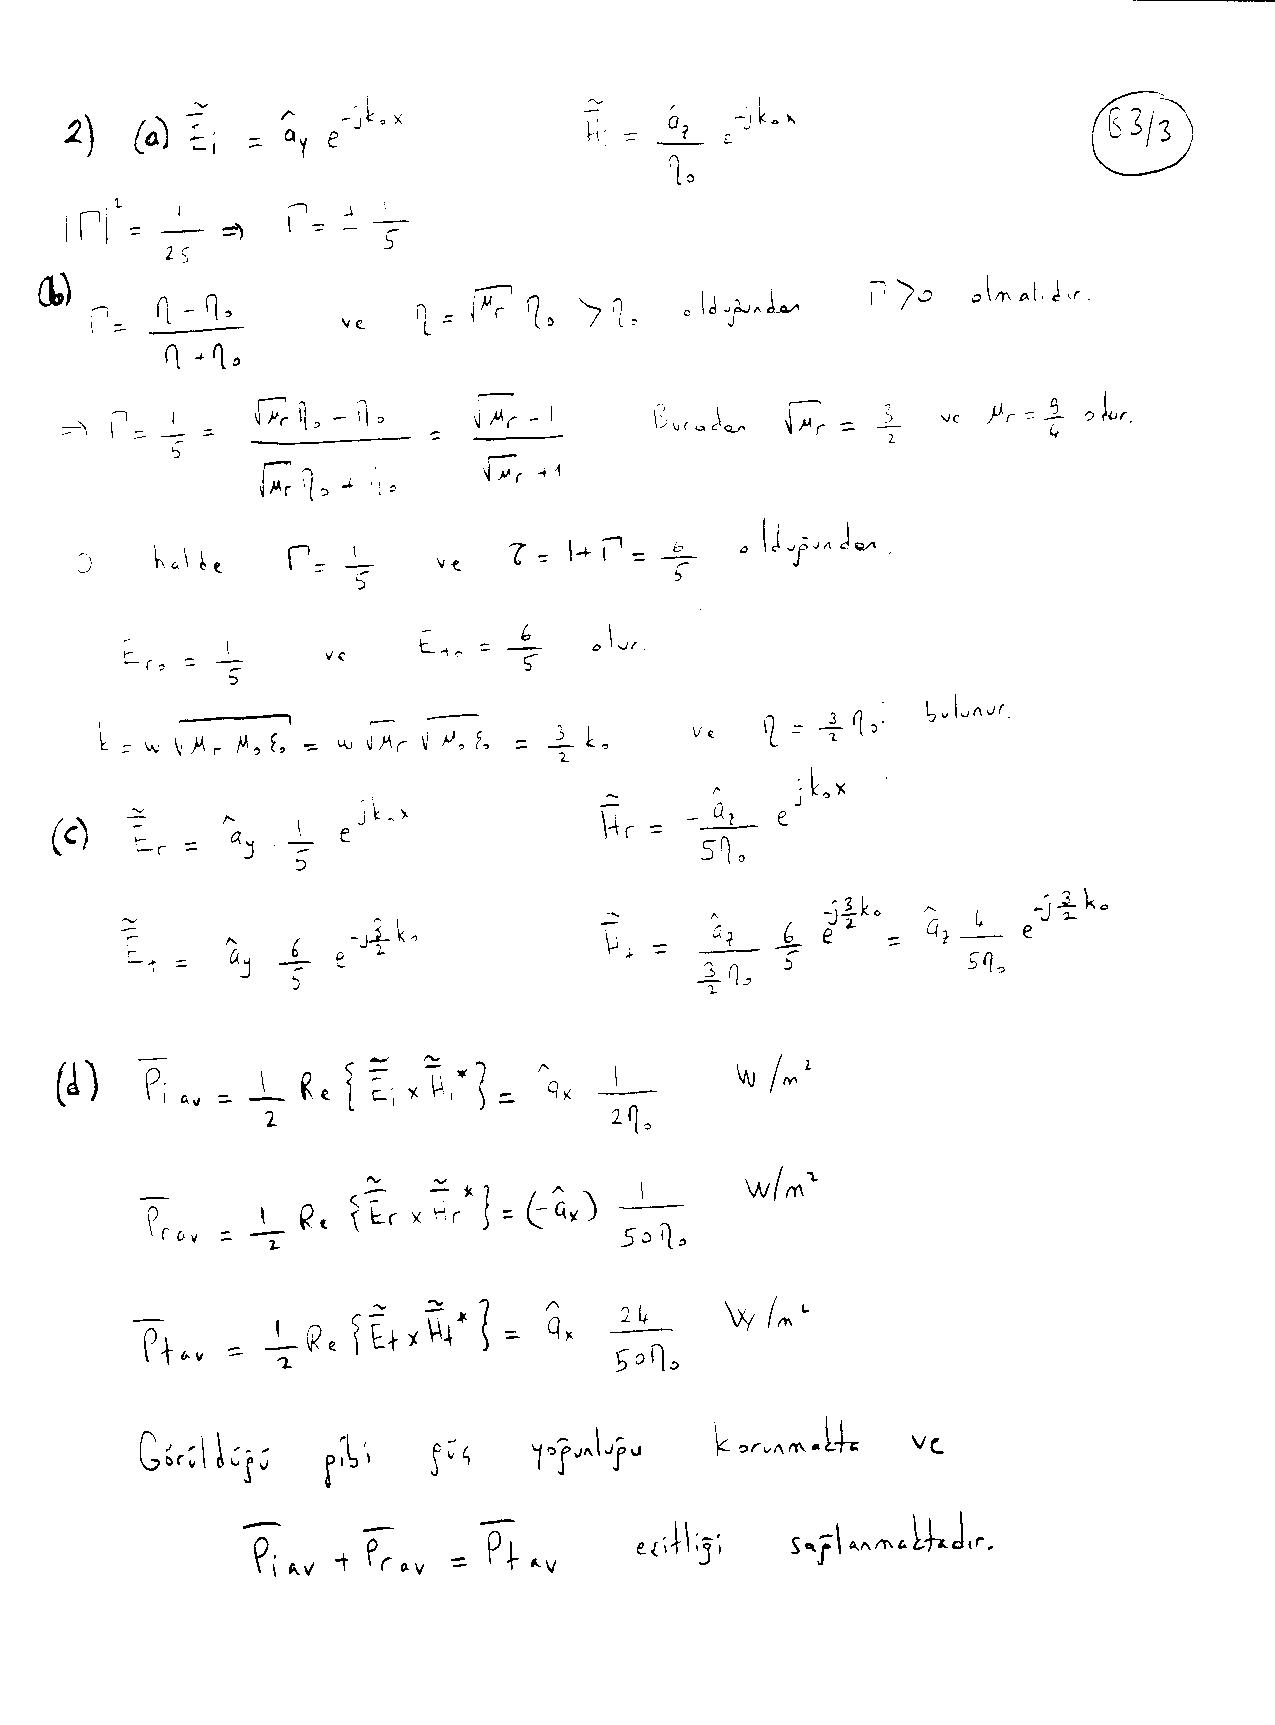 B 3/3
2) (a) Ẽ̄i = ây e^(-jk₀x)    H̃̄i = âz/η₀ e^(-jk₀x)
|Γ|² = 1/25 ⇒ Γ = ± 1/5
(b) Γ = (η - η₀)/(η + η₀) ve η = √μr η₀ > η₀ olduğundan Γ > 0 olmalıdır.
⇒ Γ = 1/5 = (√μr η₀ - η₀)/(√μr η₀ + η₀) = (√μr - 1)/(√μr + 1) Buradan √μr = 3/2 ve μr = 9/4 olur.
O halde Γ = 1/5 ve τ = 1 + Γ = 6/5 olduğundan.
Er₀ = 1/5 ve Et₀ = 6/5 olur.
k = w √(μr μ₀ ε₀) = w √μr √(μ₀ ε₀) = 3/2 k₀ ve η = 3/2 η₀ bulunur.
(c) Ẽ̄r = ây · 1/5 e^(jk₀x)    H̃̄r = -âz/(5η₀) e^(jk₀x)
Ẽ̄t = ây 6/5 e^(-j3/2 k₀)    H̃̄t = âz/(3/2 η₀) 6/5 e^(-j3/2 k₀) = âz 4/(5η₀) e^(-j3/2 k₀)
(d) P̄i av = 1/2 Re {Ẽ̄i × H̃̄i*} = âx 1/(2η₀) W/m²
P̄r av = 1/2 Re {Ẽ̄r × H̃̄r*} = (-âx) 1/(50η₀) W/m²
P̄t av = 1/2 Re {Ẽ̄t × H̃̄t*} = âx 24/(50η₀) W/m²
Görüldüğü gibi güç yoğunluğu korunmakta ve
P̄i av + P̄r av = P̄t av eşitliği sağlanmaktadır.